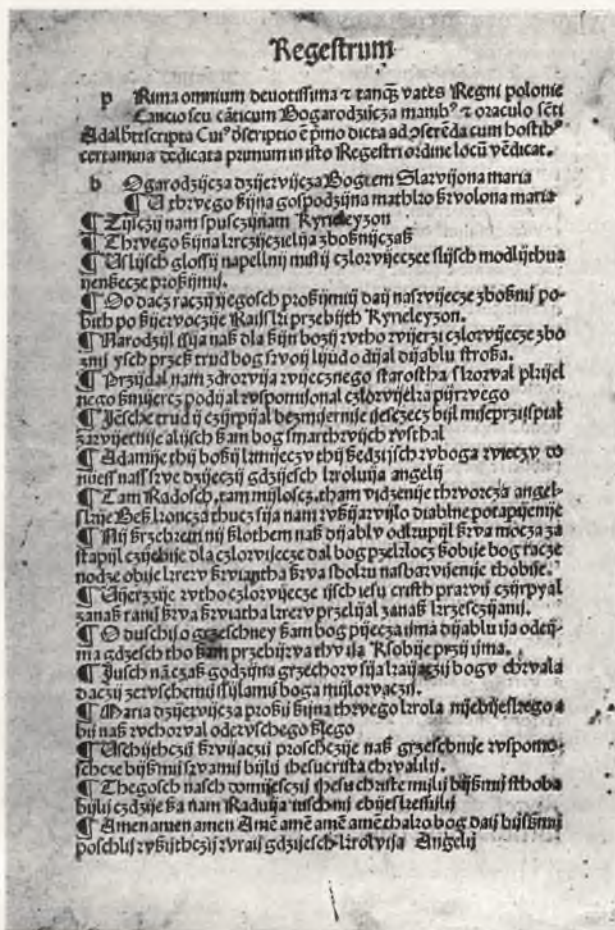 Regestrum
p Rima omnium deuotissima ⁊ tanqȝ vates Regni polonie
Cancio seu cāticum Bogarodzijcza manibꝰ ⁊ oraculo scti
Adalberti scripta Cuiꝰ descriptio ē pmo dicta ad ꝯserēda cum hostibꝰ
certamina dedicata primum in isto Regestri ordine locū vēdicat.
b Ogarodzijcza dzijervijcza Bogiem Slarvijona maria
¶ U thrvego ßijna gospodzijna mathko ßrvolona maria
¶ Zijsczij nam spusczijnam Kyrieleyzon
¶ Thrvego ßijna krczijczielija zboßnijczaß
¶ Uslijsch glossij napellnij mislij czlorvijeczee slijsch modlijthua
ijenßecze proßijmij.
¶ Do dacz raczij ijegosch proßijmij daij nasrvijecze zboßnij po-
bith po ßijervoczije Raijski przebijth Kyrieleyzon.
¶ Narodzijl ssija naß dla ßijn bozij rvtho rvijerzi czlorvijecze zbo
znij ysch przeß trud bog srvoij lijud odijal dijablu stroßa.
¶ Przijdal nam zdrorvija rvijecznego starostha skorval pkijel
nego ßmijercz podijal rvspomijonal czlorvijeka pijrvego
¶ Jesche trud ij czijrpijal bezmijernije ijesczecz bijl nijeprzijspial
zarvijernije alijsch ßam bog smarthrvijch rvsthal
¶ Adamije thij boßij kmijeczu thij ßedzijsch rvboga rvieczu do
nijess nass srve dzijeczij gdzijesch kroluija angelij
¶ Tam Radosch, tam mijloscz, tham vidzenije thrvorcza angel-
skije Beß koncza thucz sija nam rvßijarvijlo diablne potapijenije
¶ Nij ßrzebrem nij ßlothem naß dijablv odkupijl ßrva mocza za
stapijl czijebije dla czlorvijecze dal bog przeklocz ßobije bog racze
nodze obije krerv ßrviantha ßrva sboku nasbarvijenije thobije.
¶ Uijerzzije rvtho czlorvijecze ijsch iesu cristh prarvij czijrpyal
zanaß ranij ßrva ßrviatha krerv przelijal zanaß krzesczijanij.
¶ O duschij o grzeschney ßam bog pijecza ijma dijablu ija odeij-
ma gdzesch tho ßam przebijrva thv ija Ksobije przij ijma.
¶ Jusch nā czaß godzijna grzechorv sija kaijaczij bogv chrvala
daczij zervschemij ssijlamij boga mijlorvaczij.
¶ Maria dzijervijcza proßij ßijna thrvego krola nijebijeskiego a
bij naß rvchorval odervschego ßlego
¶ Uschijthczij ßrvijaczij proschczije naß grzeschnije rvspomo-
schcze bijßmij srvamij bijlij ihesucrista chrvalilij.
¶ Thegosch nasch domijesczij Jhesu christe mijlij bijßmij sthoba
bijlij czdzije ßa nam Raduija iuschnij ebijeskiessijlij
¶ Amen amen amen Amē amē amē amē thalzo bog daij bijßmij
poschlij rvßijthczij rvraij gdzijesch krolvija Angelij